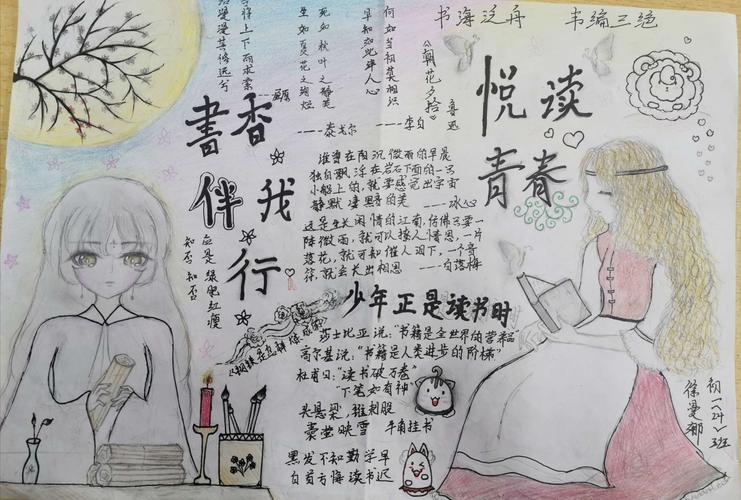 书海泛舟 韦编三绝
漫漫其修远兮
将上下而求索
——屈原
生如夏花之绚烂
死如秋叶之静美
——泰戈尔
早知如此绊人心
何如当初莫相识
——李白
《朝花夕拾》
鲁迅
悦读
青春
書香
伴我
行
谁曾在阴沉微雨的早晨
独自飘浮在岩石下面的一只
小船上的,就要感觉出宇宙
静默凄黯的美 ——冰心
这是生长闲情的江南,仿佛只要一
阵微雨,就可以撩人情思,一片
落花,就可以催人泪下,一个音
符,就会长出相思 ——白落梅
知否 知否
应是绿肥红瘦
少年正是读书时
《钢铁是怎样炼成的》
莎士比亚说:"书籍是全世界的营养品"
高尔基说:"书籍是人类进步的阶梯"
杜甫曰:"读书破万卷
下笔如有神"
头悬梁,锥刺股
囊萤映雪 牛角挂书
黑发不知勤学早
白首方悔读书迟
初一(24)班
徐曼